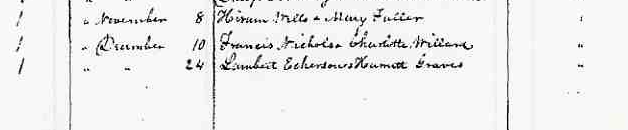 1 " November 8 Hiram Wells & Mary Fuller
1 " December 10 Francis Nichols & Charlotte Willard
1 " " 24 Lambert Eckerson & Harriett Graves